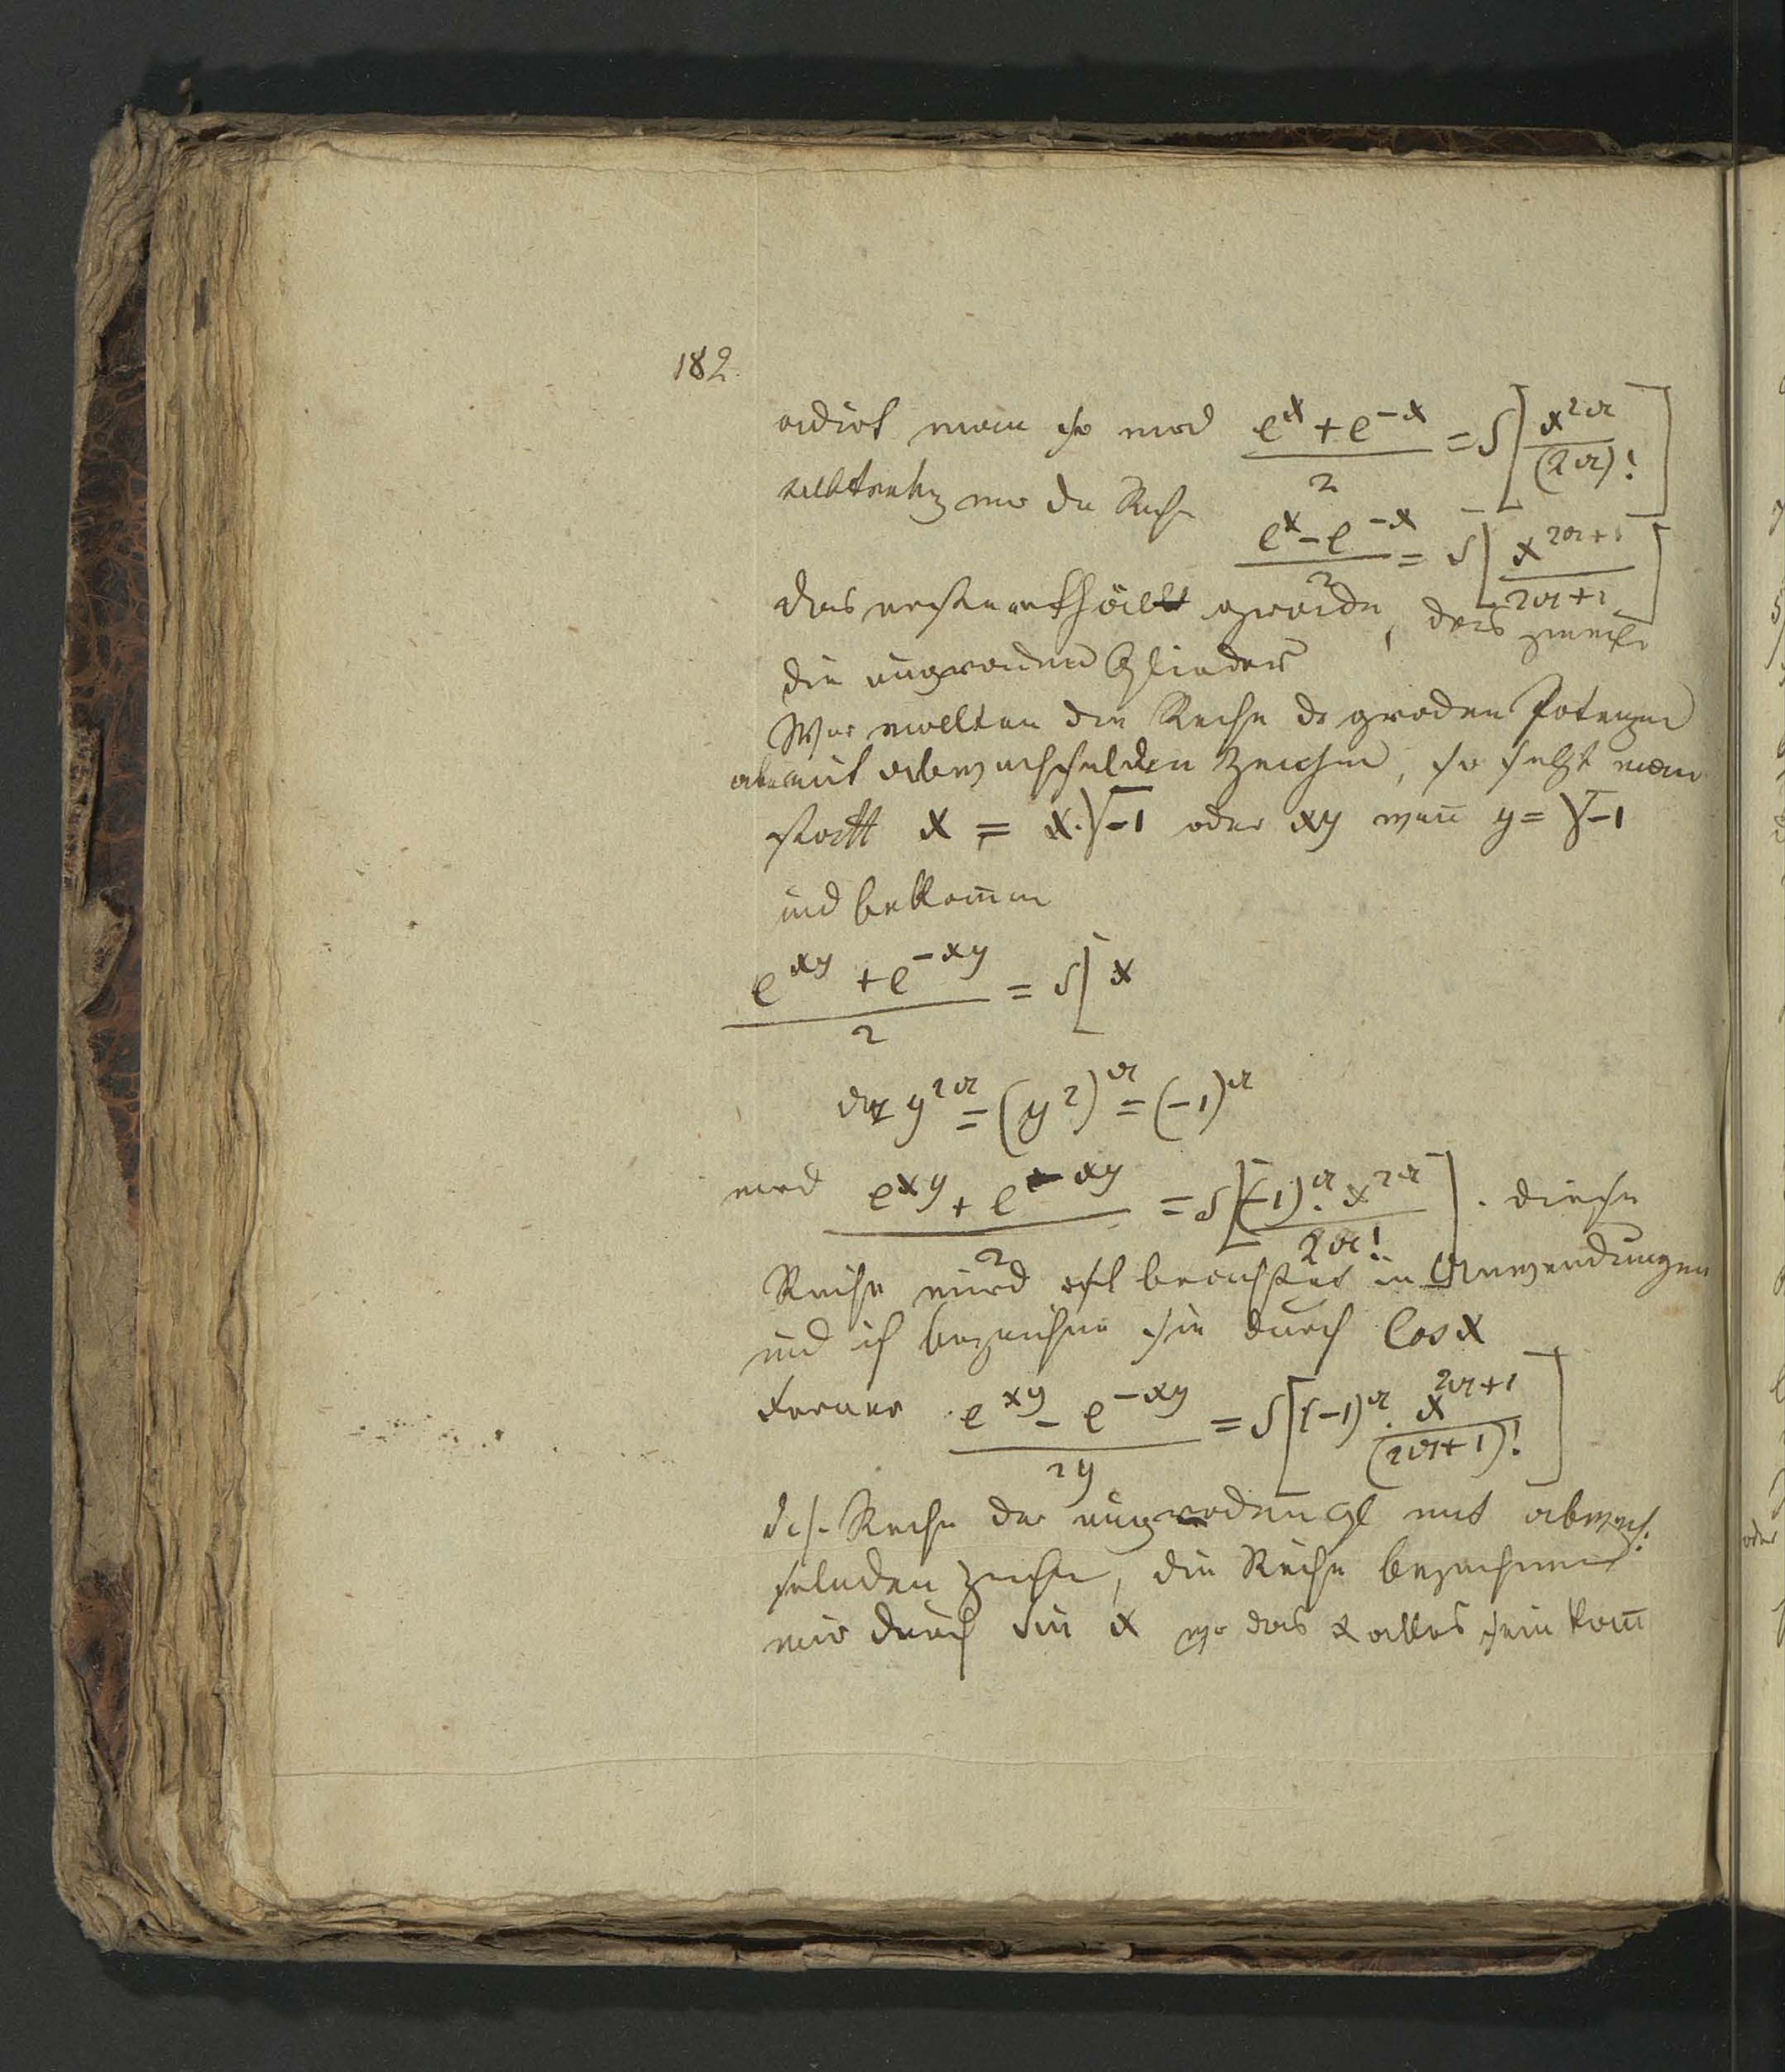 182.
adirt man so wird (e^x + e^-x)/2 = S[x^2a/(2a)!]
subtrahiz wir die Reihe (e^x - e^-x)/2 = S[x^2a+1/2a+1]
das erste enthält grade, das zweite
die ungraden Glieder
Wir wollten die Reihe der graden Potenzen
aber mit abwechselnden Zeichen, so setzt man
statt x = x.√-1 oder xy wenn y = √-1
und bekommen
(e^xy + e^-xy)/2 = S[x
da y^2a = (y^2)^a = (-1)^a
wird (e^xy + e^-xy)/2 = S[(-1)^a. x^2a/2a!]. diese
Reihe wird oft beachtet in Anwendungen
und ich bezeichne sie durch Cos x
ferner (e^xy - e^-xy)/2y = S[(-1)^a. x^2a+1/(2a+1)!]
d.h. Reihe der ungraden Gl mit abwech:
selnden Zeichen, die Reihe bezeichnen
wir durch Sin x wo das x alles sein kann
oder